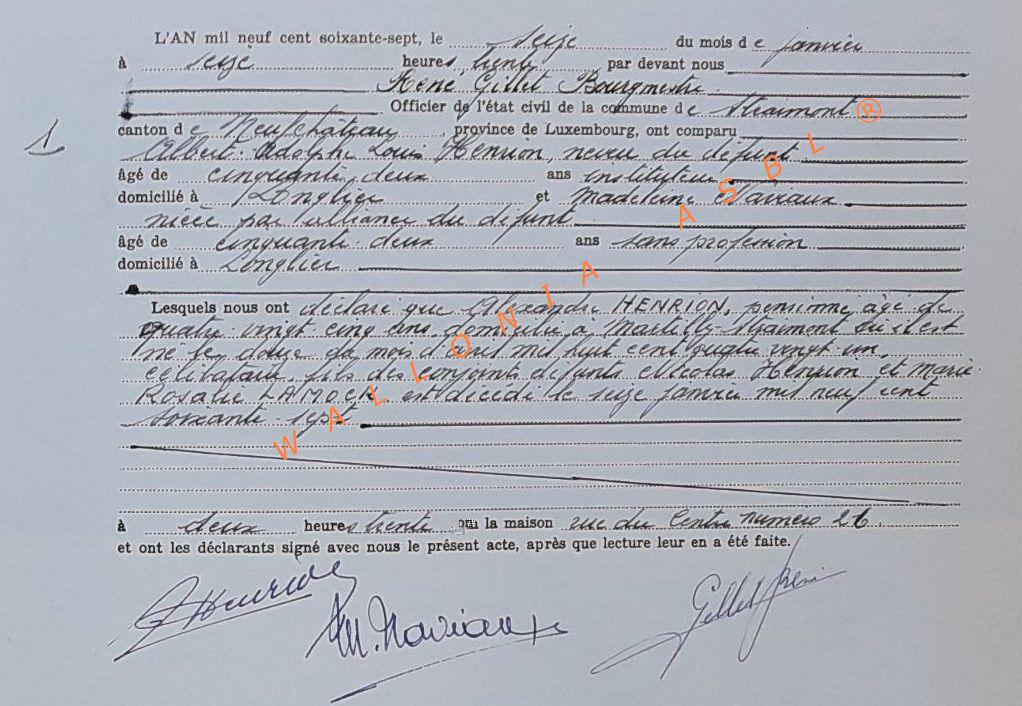 L'AN mil neuf cent soixante-sept, le seize du mois de janvier
à seize heures trente par devant nous
René Gillet Bourgmestre
Officier de l'état civil de la commune de Straimont
1
canton de Neufchâteau, province de Luxembourg, ont comparu
Albert Adolphe Louis Henrion, neveu du défunt
âgé de cinquante deux ans instituteur
domicilié à Longlier et Madeleine Naviaux
nièce par alliance du défunt
âgé de cinquante deux ans sans profession
domicilié à Longlier
Lesquels nous ont déclaré que Alexandre HENRION, pensionné âgé de
quatre-vingt cinq ans domicilié à Martilly-Straimont où il est
né le douze du mois d'avril mil huit cent quatre vingt un,
célibataire, fils des conjoints défunts Nicolas Henrion et Marie-
Rosalie LAMOCK est décédé le seize janvier mil neuf cent
soixante sept
à deux heures trente en la maison rue du Centre numero 26
et ont les déclarants signé avec nous le présent acte, après que lecture leur en a été faite.
Henrion
M. Naviaux
Gillet René
WALLONIA ASBL ®